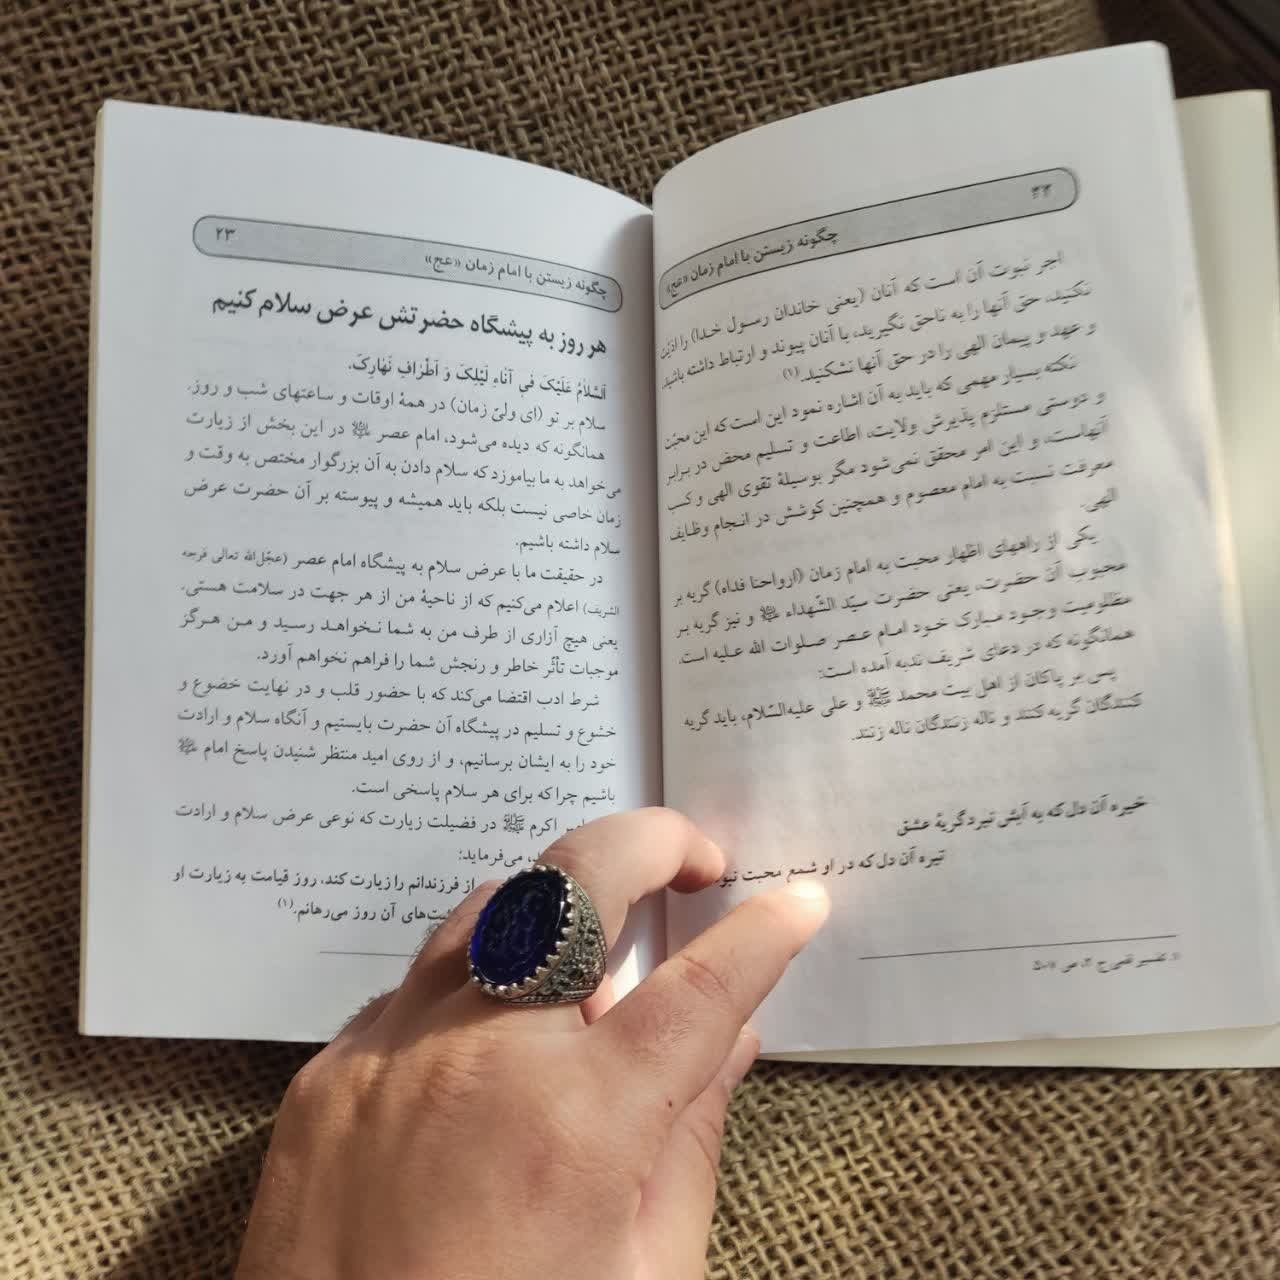 ۲۲
چگونه زیستن با امام زمان «عج»
اجر نبوت آن است که آنان (یعنی خاندان رسول خدا) را اذیت
نکنید، حق آنها را به ناحق نگیرید، با آنان پیوند و ارتباط داشته باشید
و عهد و پیمان الهی را در حق آنها نشکنید.(۱)
نکته بسیار مهمی که باید به آن اشاره نمود این است که این محبّت
و دوستی مستلزم پذیرش ولایت، اطاعت و تسلیم محض در برابر
آنهاست، و این امر محقق نمی‌شود مگر بوسیلهٔ تقوی الهی و کسب
معرفت نسبت به امام معصوم و همچنین کوشش در انجام وظایف
الهی.
یکی از راههای اظهار محبت به امام زمان (ارواحنا فداه) گریه بر
محبوب آن حضرت، یعنی حضرت سیّد الشّهداء ﷺ و نیز گریه بر
مظلومیت وجود مبارک خود امام عصر صلوات الله علیه است.
همانگونه که در دعای شریف ندبه آمده است:
پس بر پاکان از اهل بیت محمد ﷺ و علی علیه‌السّلام، باید گریه
کنندگان گریه کنند و ناله زنندگان ناله زنند.
خیره آن دل که به آبش نبرد گریهٔ عشق
تیره آن دل که در او شمع محبت
۱. تفسیر قمی ج ۲، ص
۲۳
چگونه زیستن با امام زمان «عج»
هر روز به پیشگاه حضرتش عرض سلام کنیم
اَلسَّلامُ عَلَیْکَ فی آناءِ لَیْلِکَ وَ اَطْرافِ نَهارِکَ.
سلام بر تو (ای ولیّ زمان) در همهٔ اوقات و ساعتهای شب و روز.
همانگونه که دیده می‌شود، امام عصر ﷺ در این بخش از زیارت
می‌خواهد به ما بیاموزد که سلام دادن به آن بزرگوار مختص به وقت و
زمان خاصی نیست بلکه باید همیشه و پیوسته بر آن حضرت عرض
سلام داشته باشیم.
در حقیقت ما با عرض سلام به پیشگاه امام عصر (عجّل‌الله تعالی فرجه
الشریف) اعلام می‌کنیم که از ناحیهٔ من از هر جهت در سلامت هستی.
یعنی هیچ آزاری از طرف من به شما نخواهد رسید و من هرگز
موجبات تأثّر خاطر و رنجش شما را فراهم نخواهم آورد.
شرط ادب اقتضا می‌کند که با حضور قلب و در نهایت خضوع و
خشوع و تسلیم در پیشگاه آن حضرت بایستیم و آنگاه سلام و ارادت
خود را به ایشان برسانیم، و از روی امید منتظر شنیدن پاسخ امام ﷺ
باشیم چرا که برای هر سلام پاسخی است.
اکرم ﷺ در فضیلت زیارت که نوعی عرض سلام و ارادت
می‌فرماید:
از فرزندانم را زیارت کند، روز قیامت به زیارت او
آن روز می‌رهانم.(۱)